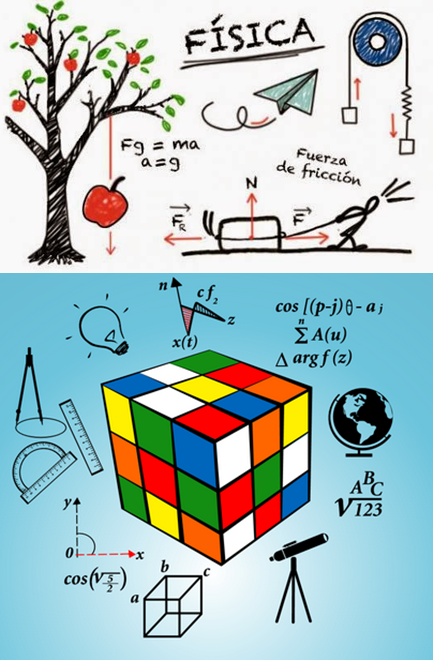 FÍSICA
Fg = ma
a = g
Fuerza
de fricción
N
F_R
F
n
c f₂
z
x(t)
cos [(p-j)θ - a j
n
Σ A(u)
Δ arg f (z)
A B C
√123
y
0
x
cos(√5/2)
a
b
c